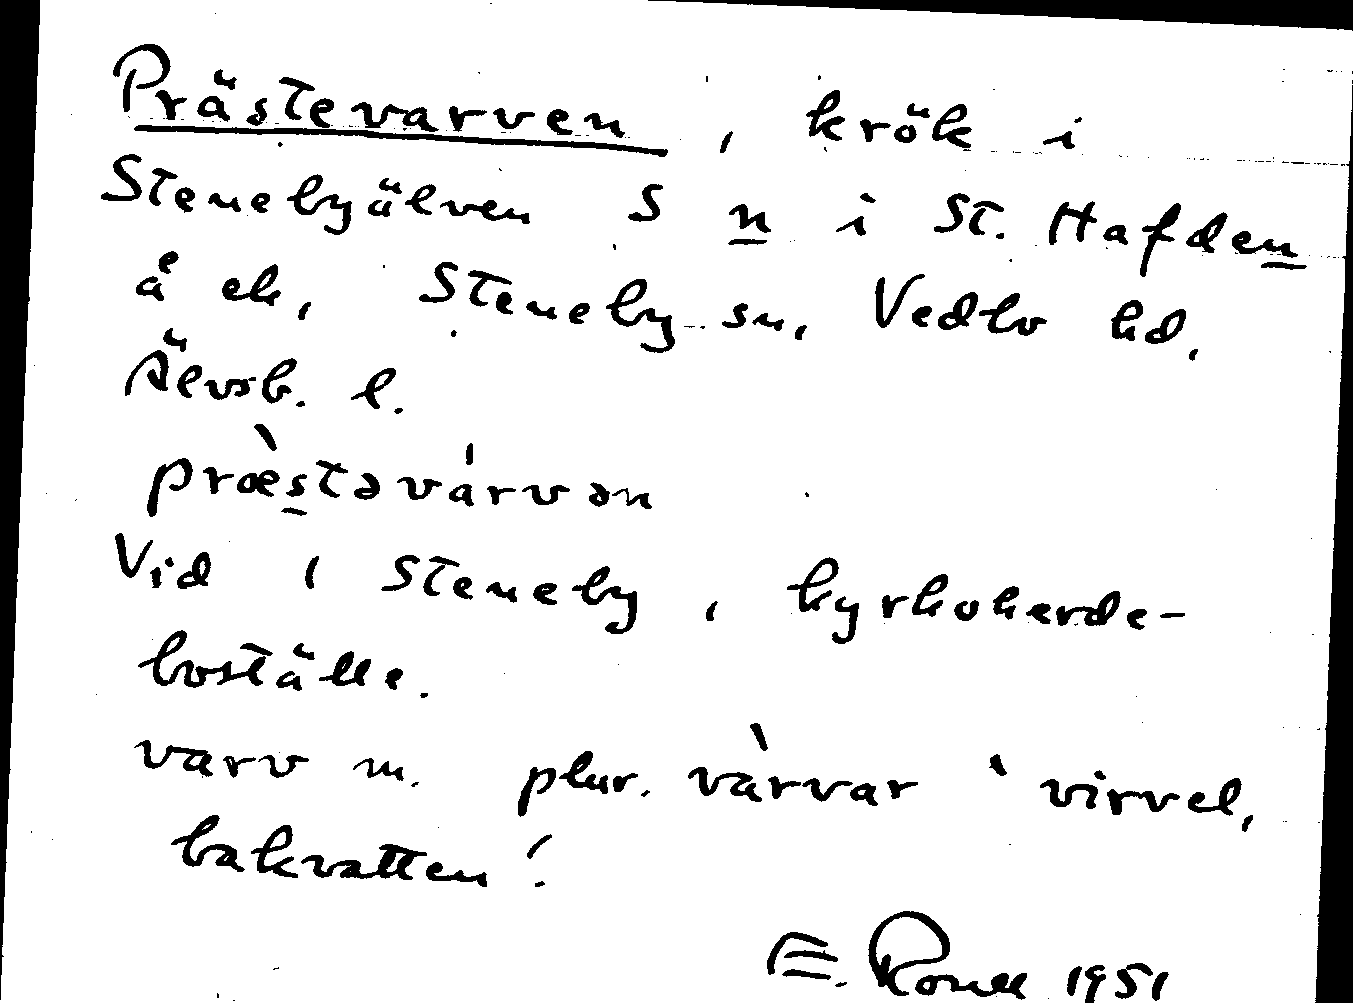 Prästevarven, krök i
Stenebyälven S n i St. Hafden
å ek, Steneby sn, Vedbo hd,
Älvsb. l.
præstəvárvən
Vid 1 Steneby, kyrkoherde-
boställe.
varv m. plur. vàrvar ‘virvel,
bakvatten’.
E. 1951